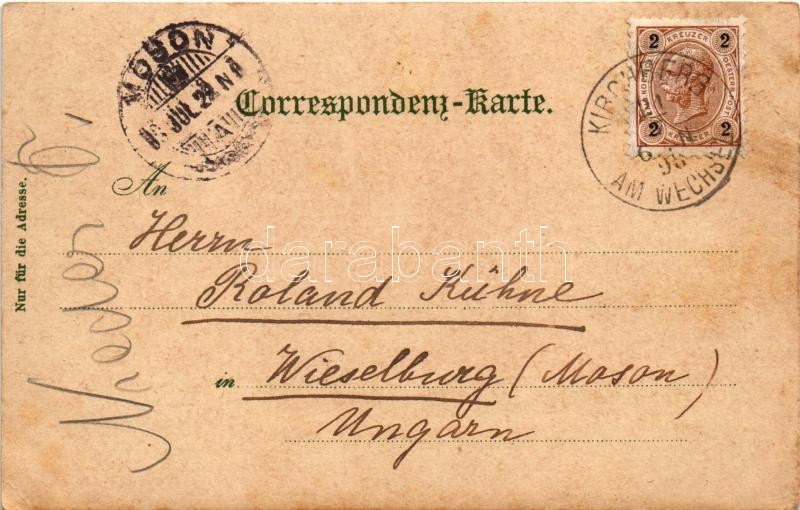 MOSON
JUL 29 N
Correspondenz-Karte.
2 KREUZER 2
2 KREUZER 2
KIRCHBERG
AM WECHSEL
98
An
Herrn
Roland Kühne
in Wieselburg (Moson)
Ungarn
Nur für die Adresse.
darabanth